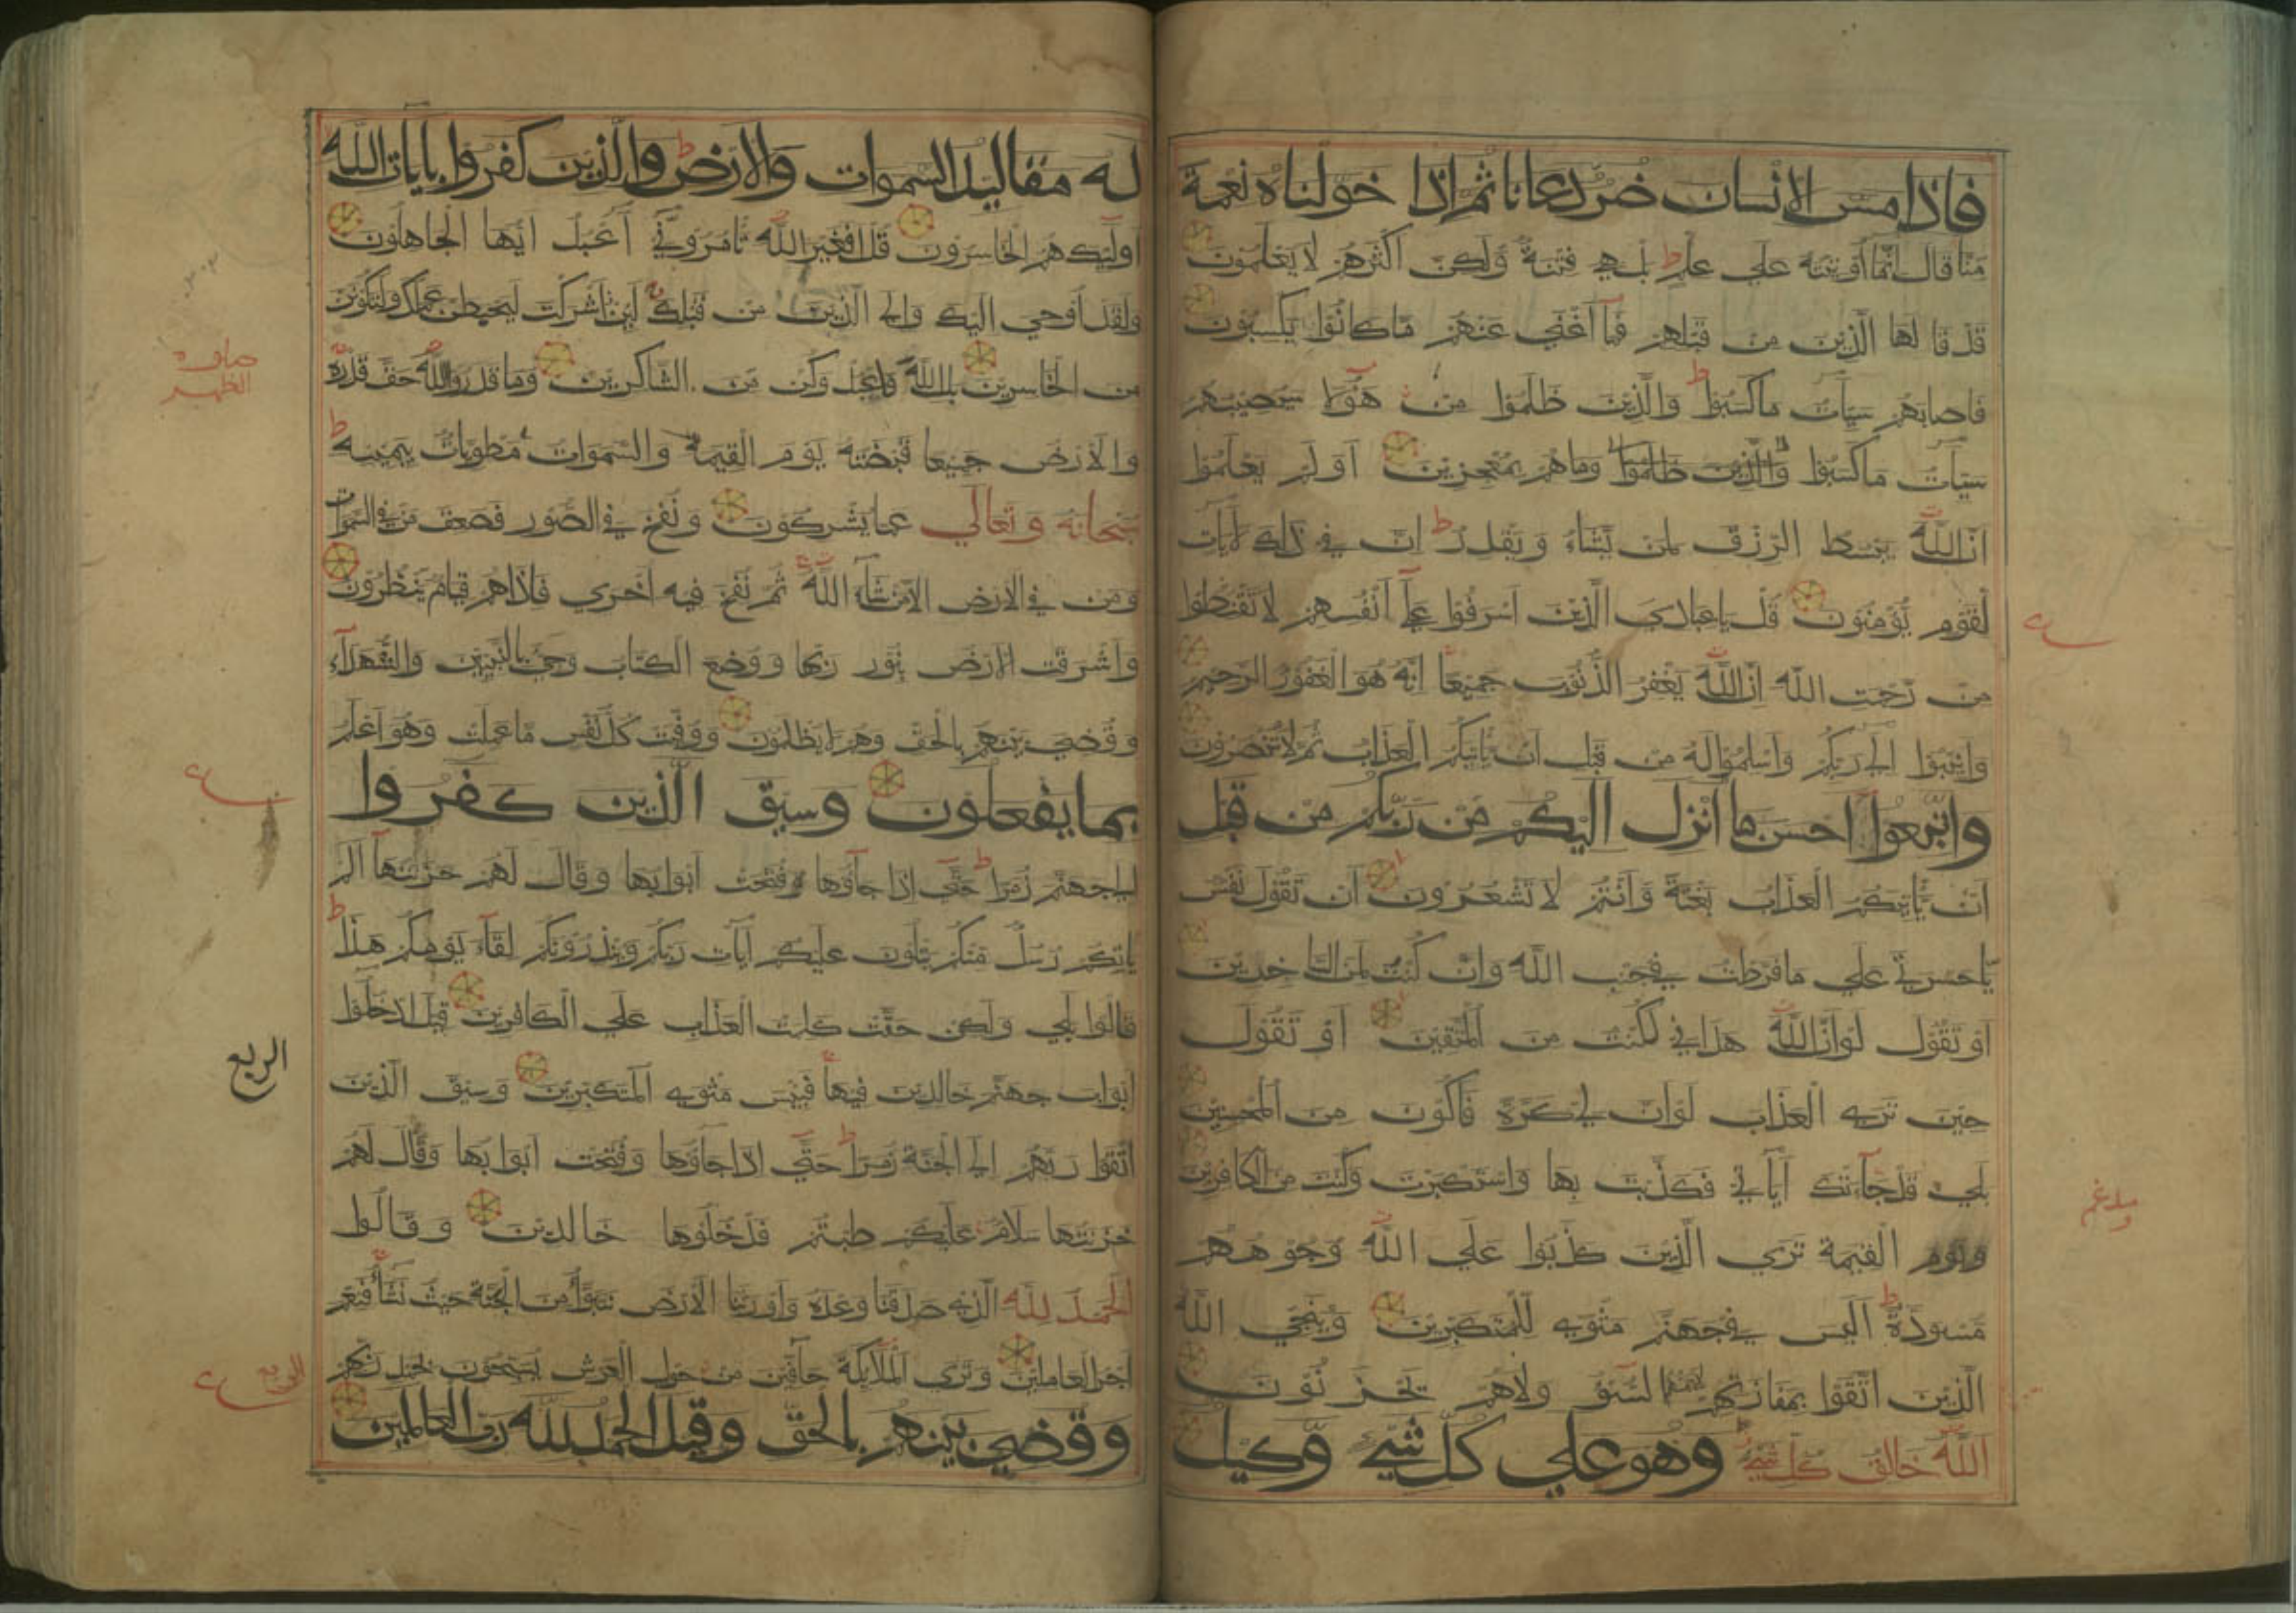 فاذا مس الانسان ضر دعانا ثم اذا خولناه نعمة
منا قال انما اوتيته علي علم بل هي فتنة ولكن اكثرهم لا يعلمون
قد قالها الذين من قبلهم فما اغني عنهم ما كانوا يكسبون
فاصابهم سيات ما كسبوا والذين ظلموا من هؤلا سيصيبهم
سيات ما كسبوا والذين ظلموا وما هم بمعجزين اولم يعلموا
ان الله يبسط الرزق لمن يشاء ويقدر ان في ذلك لايات
لقوم يؤمنون قل يا عبادي الذين اسرفوا علي انفسهم لا تقنطوا
من رحمت الله ان الله يغفر الذنوب جميعا انه هو الغفور الرحيم
وانيبوا الي ربكم واسلموا له من قبل ان ياتيكم العذاب ثم لا تنصرون
واتبعوا احسن ما انزل اليكم من ربكم من قبل
ان ياتيكم العذاب بغتة وانتم لا تشعرون ان تقول نفس
يا حسرتي علي ما فرطت في جنب الله وان كنت لمن الساخرين
او تقول لو ان الله هداني لكنت من المتقين او تقول
حين تري العذاب لو ان لي كرة فاكون من المحسنين
بلي قد جاءتك اياتي فكذبت بها واستكبرت وكنت من الكافرين
ويوم القيمة تري الذين كذبوا علي الله وجوههم
مسودة اليس في جهنم مثوي للمتكبرين وينجي الله
الذين اتقوا بمفازتهم لا يمسهم السوء ولا هم يحزنون
الله خالق كل شيء وهو علي كل شيء وكيل
له مقاليد السموات والارض والذين كفروا بايات الله
اولئك هم الخاسرون قل افغير الله تامروني اعبد ايها الجاهلون
ولقد اوحي اليك والي الذين من قبلك لئن اشركت ليحبطن عملك ولتكونن
من الخاسرين بل الله فاعبد وكن من الشاكرين وما قدروا الله حق قدره
والارض جميعا قبضته يوم القيمة والسموات مطويات بيمينه
سبحانه وتعالي عما يشركون ونفخ في الصور فصعق من في السموات
ومن في الارض الا من شاء الله ثم نفخ فيه اخري فاذا هم قيام ينظرون
واشرقت الارض بنور ربها ووضع الكتاب وجيء بالنبيين والشهداء
وقضي بينهم بالحق وهم لا يظلمون ووفيت كل نفس ما عملت وهو اعلم
بما يفعلون وسيق الذين كفروا
الي جهنم زمرا حتي اذا جاؤها وفتحت ابوابها وقال لهم خزنتها الم
ياتكم رسل منكم يتلون عليكم ايات ربكم وينذرونكم لقاء يومكم هذا
قالوا بلي ولكن حقت كلمت العذاب علي الكافرين قيل ادخلوا
ابواب جهنم خالدين فيها فبئس مثوي المتكبرين وسيق الذين
اتقوا ربهم الي الجنة زمرا حتي اذا جاؤها وفتحت ابوابها وقال لهم
خزنتها سلام عليكم طبتم فادخلوها خالدين وقالوا
الحمد لله الذي صدقنا وعده واورثنا الارض نتبوأ من الجنة حيث نشأ فنعم
اجر العاملين وتري الملائكة حافين من حول العرش يسبحون بحمد ربهم
وقضي بينهم بالحق وقيل الحمد لله رب العالمين
الربع